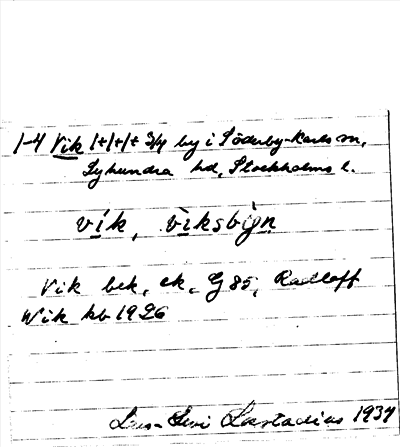 1-4 Vik 1+1+1+ 3/4 by i Söderby-Karls sn,
Lyhundra hd, Stockholms l.
vík, vìksbi̯g̀n
Vik bek, ek, G 85, Radloff
Wik kb 1926
Lars-Levi Læstadius 1934